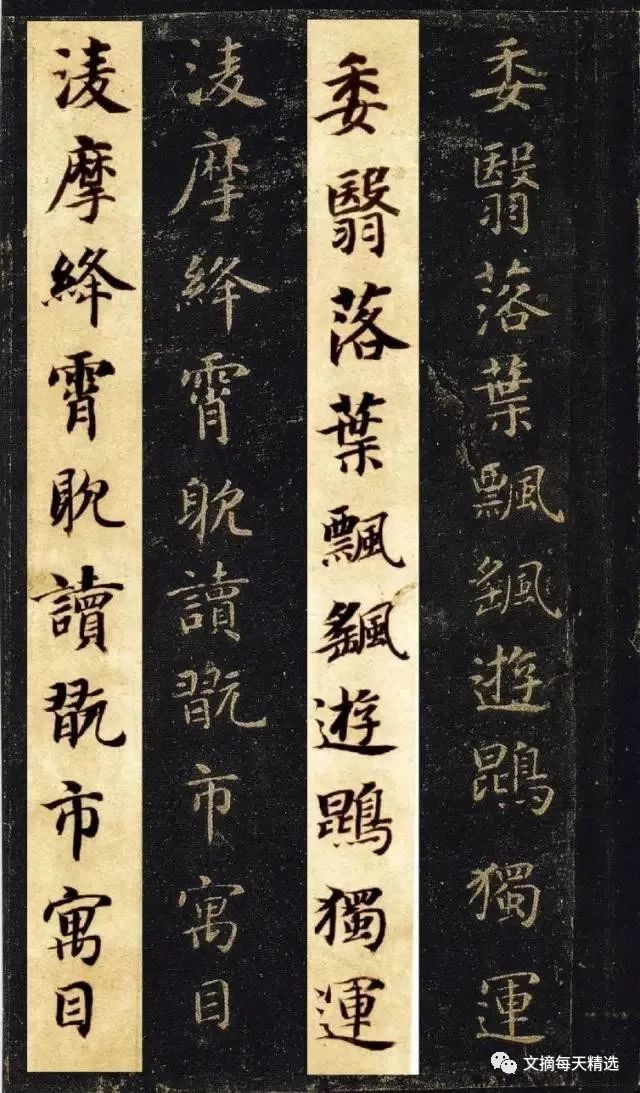 委翳落葉飄颻遊鵾獨運
委翳落葉飄颻遊鵾獨運
淩摩絳霄耽讀翫市寓目
淩摩絳霄耽讀翫市寓目
文摘每天精选